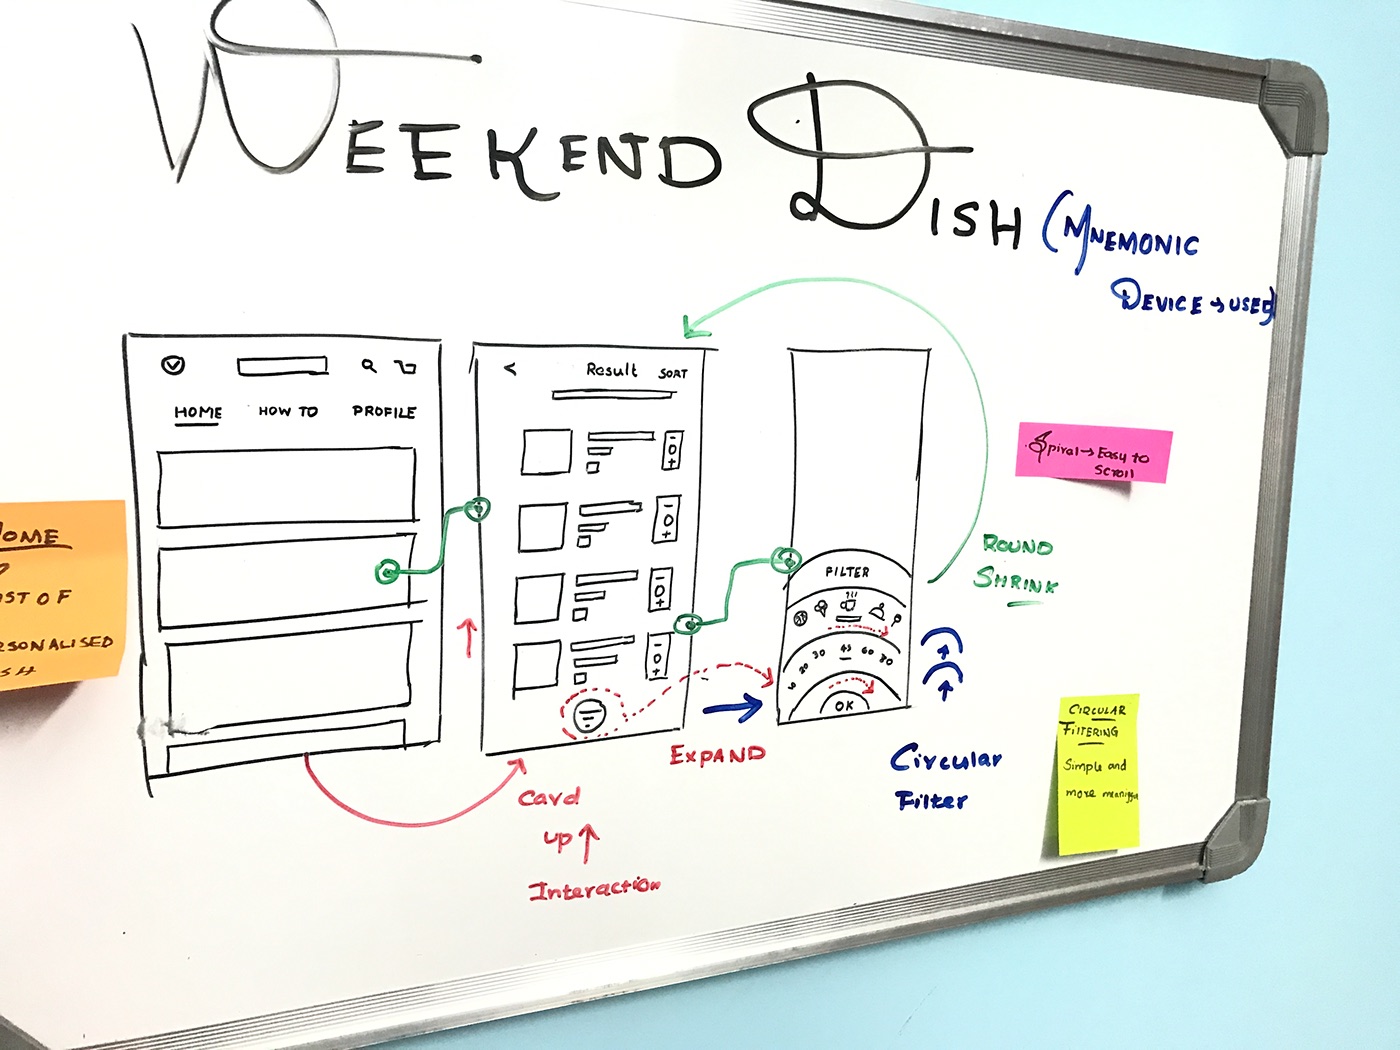 WEEKEND DISH (MNEMONIC
DEVICE → USED)
HOME HOW TO PROFILE
< Result SORT
- 0 +
- 0 +
- 0 +
- 0 +
FILTER
10 20 30 45 60 80
OK
EXPAND
Card
up ↑
Interaction
Circular
Filter
ROUND
SHRINK
Spiral → Easy to
Scroll
CIRCULAR
FILTERING
Simple and
more
OME
ST OF
RSONALISED
SH